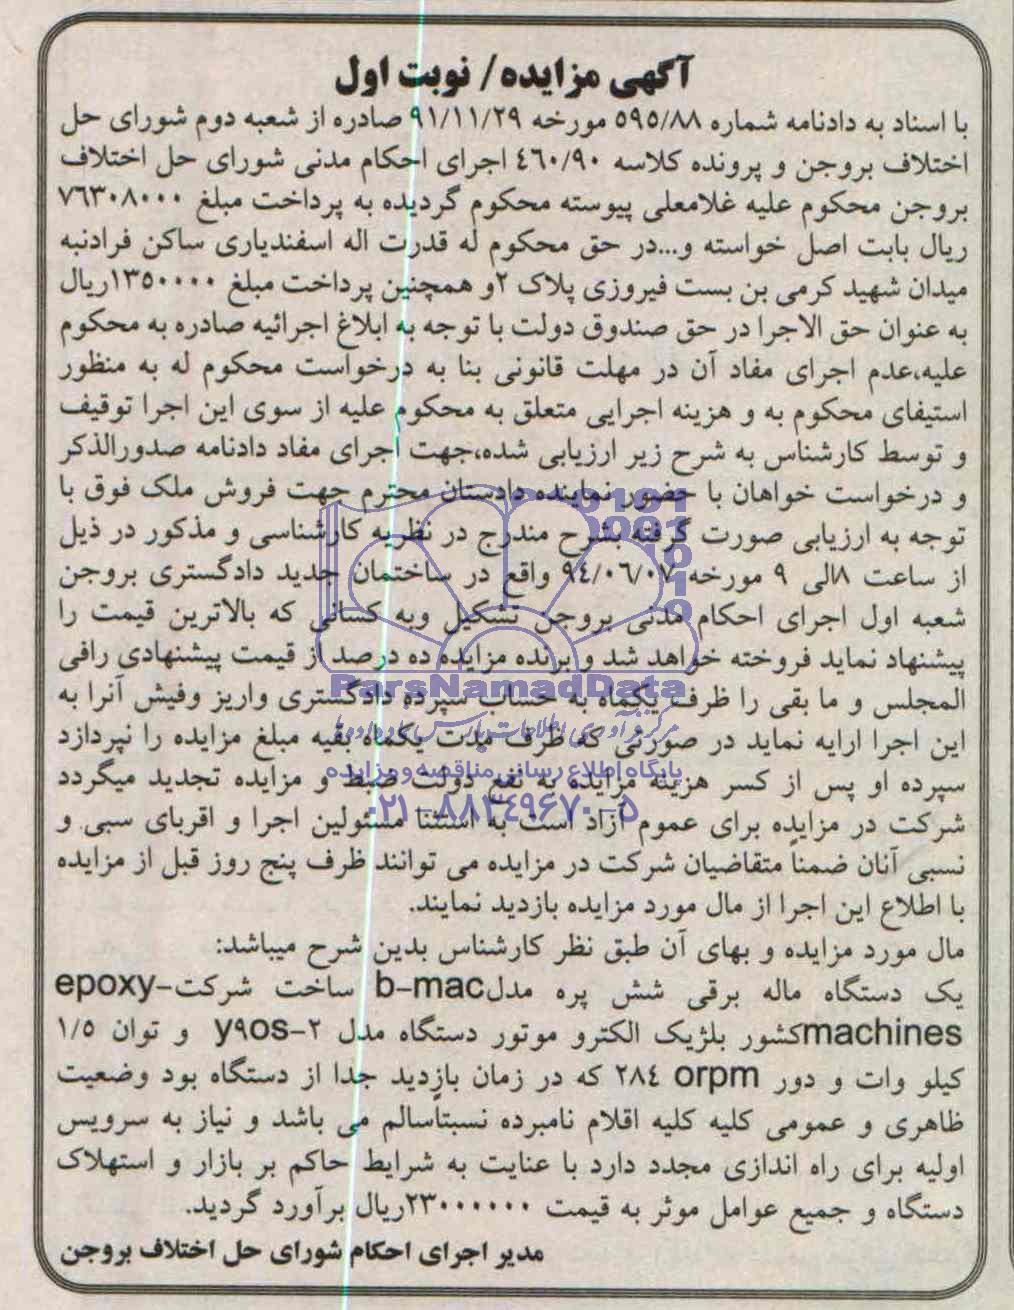 آگهی مزایده/ نوبت اول
با اسناد به دادنامه شماره ۵۹۵/۸۸ مورخه ۹۱/۱۱/۲۹ صادره از شعبه دوم شورای حل
اختلاف بروجن و پرونده کلاسه ۴۶۰/۹۰ اجرای احکام مدنی شورای حل اختلاف
بروجن محکوم علیه غلامعلی پیوسته محکوم گردیده به پرداخت مبلغ ۷۶۳۰۸۰۰۰
ریال بابت اصل خواسته و...در حق محکوم له قدرت اله اسفندیاری ساکن فرادنبه
میدان شهید کرمی بن بست فیروزی پلاک ۲و همچنین پرداخت مبلغ ۱۳۵۰۰۰۰ریال
به عنوان حق الاجرا در حق صندوق دولت با توجه به ابلاغ اجرائیه صادره به محکوم
علیه،عدم اجرای مفاد آن در مهلت قانونی بنا به درخواست محکوم له به منظور
استیفای محکوم به و هزینه اجرایی متعلق به محکوم علیه از سوی این اجرا توقیف
و توسط کارشناس به شرح زیر ارزیابی شده،جهت اجرای مفاد دادنامه صدورالذکر
و درخواست خواهان با حضور نماینده دادستان محترم جهت فروش ملک فوق با
توجه به ارزیابی صورت گرفته بشرح مندرج در نظریه کارشناسی و مذکور در ذیل
از ساعت ۸الی ۹ مورخه ۹۴/۰۶/۰۷ واقع در ساختمان جدید دادگستری بروجن
شعبه اول اجرای احکام مدنی بروجن تشکیل وبه کسانی که بالاترین قیمت را
پیشنهاد نماید فروخته خواهد شد و برنده مزایده ده درصد از قیمت پیشنهادی رافی
المجلس و ما بقی را ظرف یکماه به حساب سپرده دادگستری واریز وفیش آنرا به
این اجرا ارایه نماید در صورتی که ظرف مدت یکماه بقیه مبلغ مزایده را نپردازد
سپرده او پس از کسر هزینه مزایده به نفع دولت ضبط و مزایده تجدید میگردد
شرکت در مزایده برای عموم آزاد است به استثنا مسئولین اجرا و اقربای سبی و
نسبی آنان ضمناً متقاضیان شرکت در مزایده می توانند ظرف پنج روز قبل از مزایده
با اطلاع این اجرا از مال مورد مزایده بازدید نمایند.
مال مورد مزایده و بهای آن طبق نظر کارشناس بدین شرح میباشد:
یک دستگاه ماله برقی شش پره مدلb-mac ساخت شرکت-epoxy
machinesکشور بلژیک الکترو موتور دستگاه مدل y۹os-۲ و توان ۱/۵
کیلو وات و دور ۲۸۴ orpm که در زمان بازدید جدا از دستگاه بود وضعیت
ظاهری و عمومی کلیه کلیه اقلام نامبرده نسبتاسالم می باشد و نیاز به سرویس
اولیه برای راه اندازی مجدد دارد با عنایت به شرایط حاکم بر بازار و استهلاک
دستگاه و جمیع عوامل موثر به قیمت ۲۳۰۰۰۰۰۰ریال برآورد گردید.
مدیر اجرای احکام شورای حل اختلاف بروجن
ParsNamadData
مرکز فرآوری اطلاعات پارس نماد داده‌ها
پایگاه اطلاع رسانی مناقصه و مزایده
۰۲۱-۸۸۳۴۹۶۷۰-۵